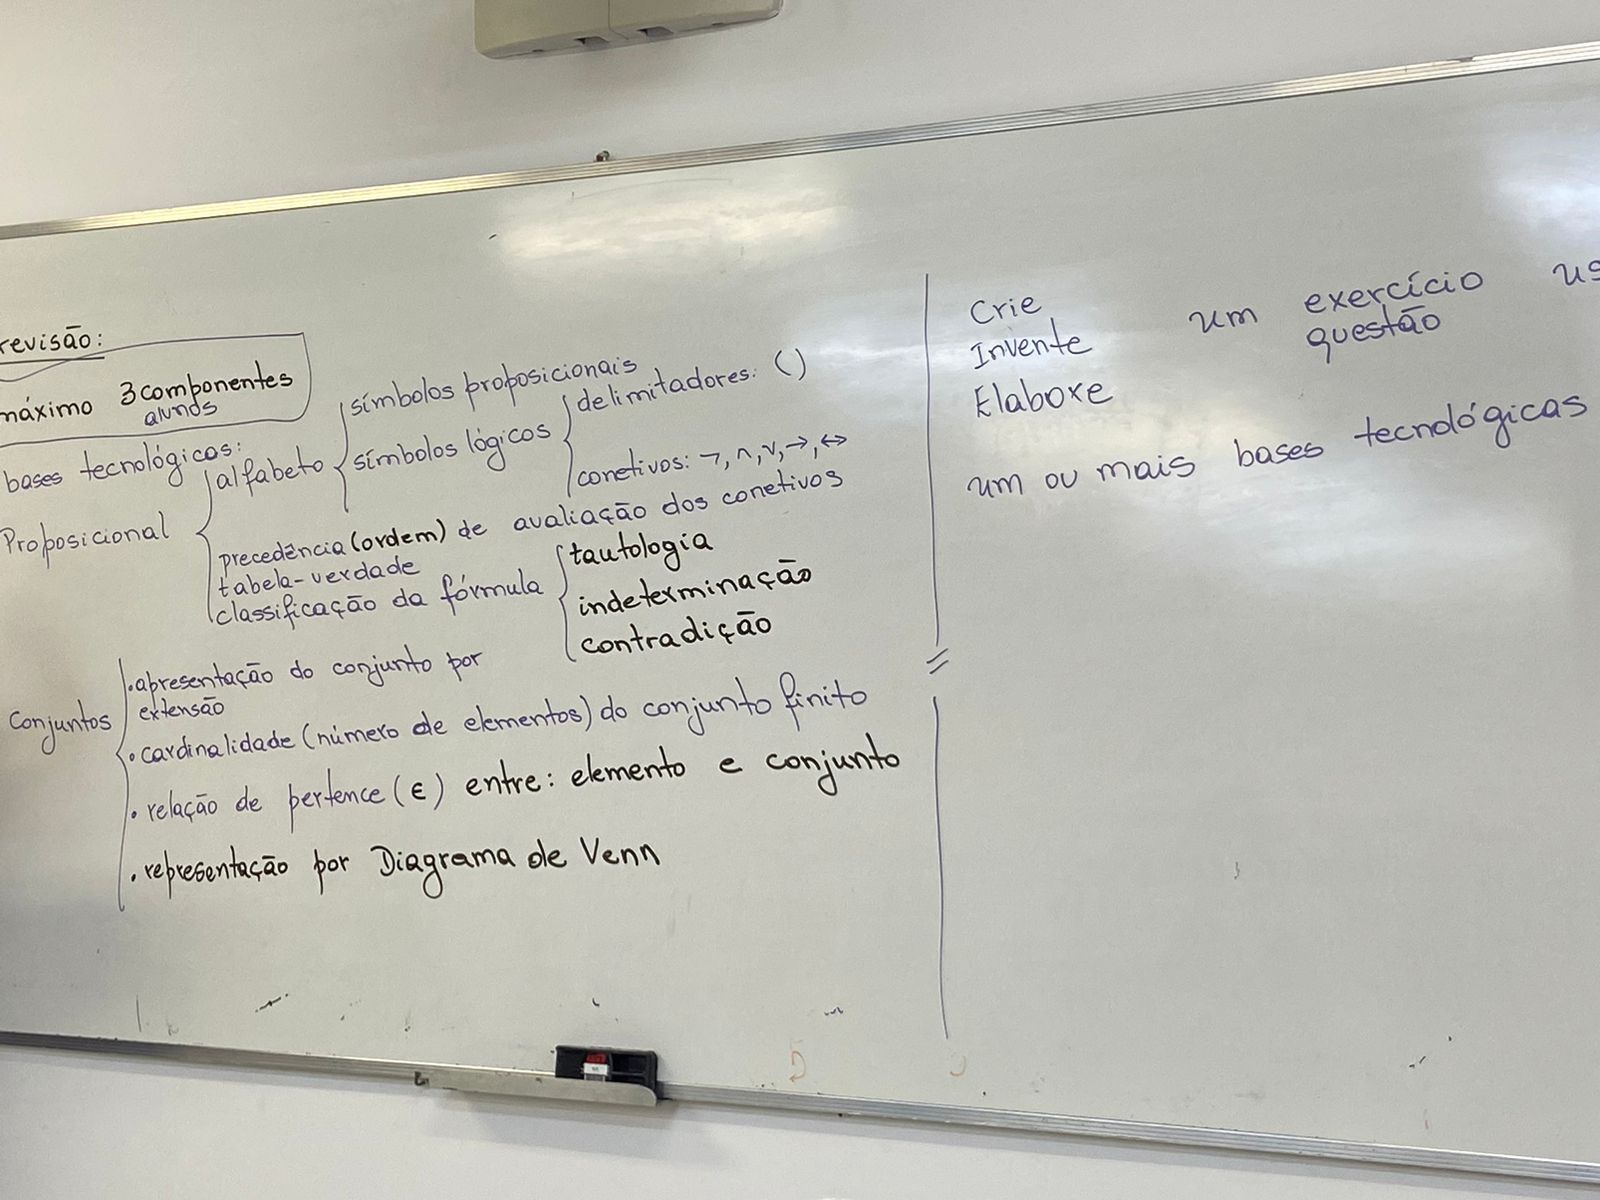 revisão:
máximo 3 componentes
alunos
bases tecnológicas:
Proposicional
alfabeto
símbolos proposicionais
símbolos lógicos
delimitadores: ()
conetivos: ¬, ∧, ∨, →, ↔
precedência (ordem) de avaliação dos conetivos
tabela-verdade
classificação da fórmula
tautologia
indeterminação
contradição
Conjuntos
• apresentação do conjunto por
extensão
• cardinalidade (número de elementos) do conjunto finito
• relação de pertence (∈) entre: elemento e conjunto
• representação por Diagrama de Venn
Crie
Invente um exercício us
Elabore questão
um ou mais bases tecnológicas